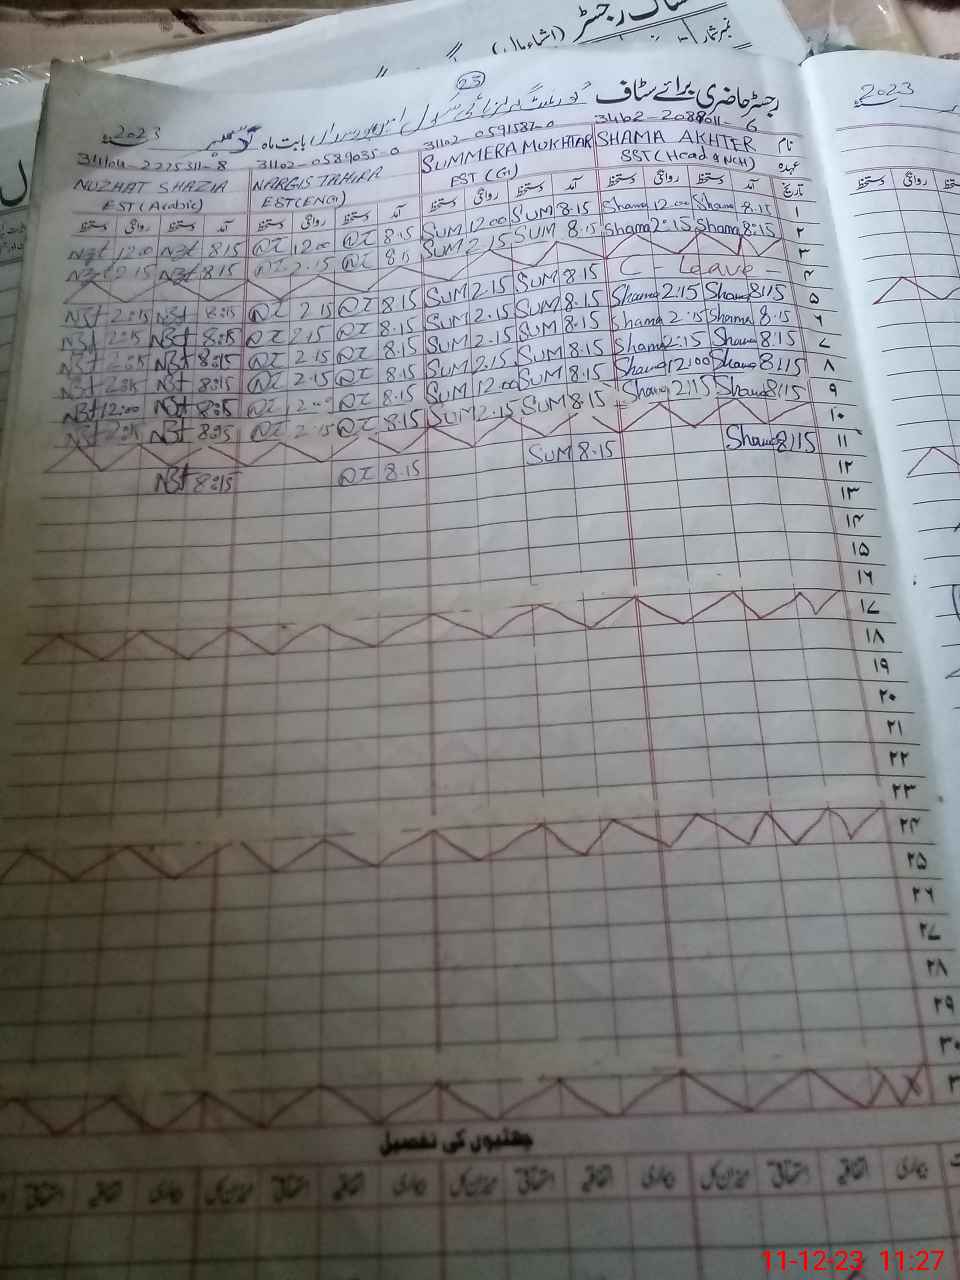 سٹاف رجسٹر (اشیاء مال)
نمبر شمار
23
رجسٹر حاضری برائے سٹاف
بابت ماہ دسمبر 2023
2023
نام SHAMA AKHTER SUMMERA MUKHTAR 31102-0591587-0 31102-0589035-0
عہدہ SST (Head NCH) EST (G) NARGIS TAHIRA NUZHAT SHAZIA
EST (ENG) EST (Arabic)
تاریخ آمد دستخط روانگی دستخط آمد دستخط روانگی دستخط آمد دستخط روانگی دستخط آمد دستخط روانگی دستخط
۱ 8.15 Shama 12:00 Shama 8.15 SUM 12.00 SUM 8.15 QT 12.00 QT 8.15 Nzt 12.00 Nzt
۲ 8:15 Shama 2:15 Shama 8.15 SUM 2.15 SUM 8.15 QT 2.15 QT 8.15 Nzt 2.15 Nzt
۳
۴ C - Leave - 8.15 SUM 2.15 SUM 8.15 QT 2.15 QT 8:15 Nzt 2:15 Nzt
۵ 8:15 Shama 2:15 Shama 8.15 SUM 2.15 SUM 8.15 QT 2.15 QT 8:15 Nzt 2:15 Nzt
۶ 8.15 Shama 2:15 Shama 8.15 SUM 2.15 SUM 8.15 QT 2.15 QT 8:15 Nzt 2:15 Nzt
۷ 8.15 Shama 2:15 Shama 8.15 SUM 2.15 SUM 8.15 QT 2.15 QT 8:15 Nzt 2:15 Nzt
۸ 8:15 Shama 12:00 Shama 8.15 SUM 12.00 SUM 8.15 QT 12.00 QT 8:15 Nzt 12:00 Nzt
۹ 8:15 Shama 2:15 Shama 8.15 SUM 2.15 SUM 8.15 QT 2.15 QT 8:15 Nzt 2:15 Nzt
۱۰
۱۱ 8:15 Shama 8.15 SUM 8.15 QT 8:15 Nzt
۱۲
۱۳
۱۴
۱۵
۱۶
۱۷
۱۸
۱۹
۲۰
۲۱
۲۲
۲۳
۲۴
۲۵
۲۶
۲۷
۲۸
۲۹
۳۰
چھٹیوں کی تفصیل
بیماری اتفاقیہ استحقاقی میزان کل بیماری اتفاقیہ استحقاقی میزان کل بیماری اتفاقیہ استحقاقی میزان کل بیماری اتفاقیہ استحقاقی
11-12-23 11:27